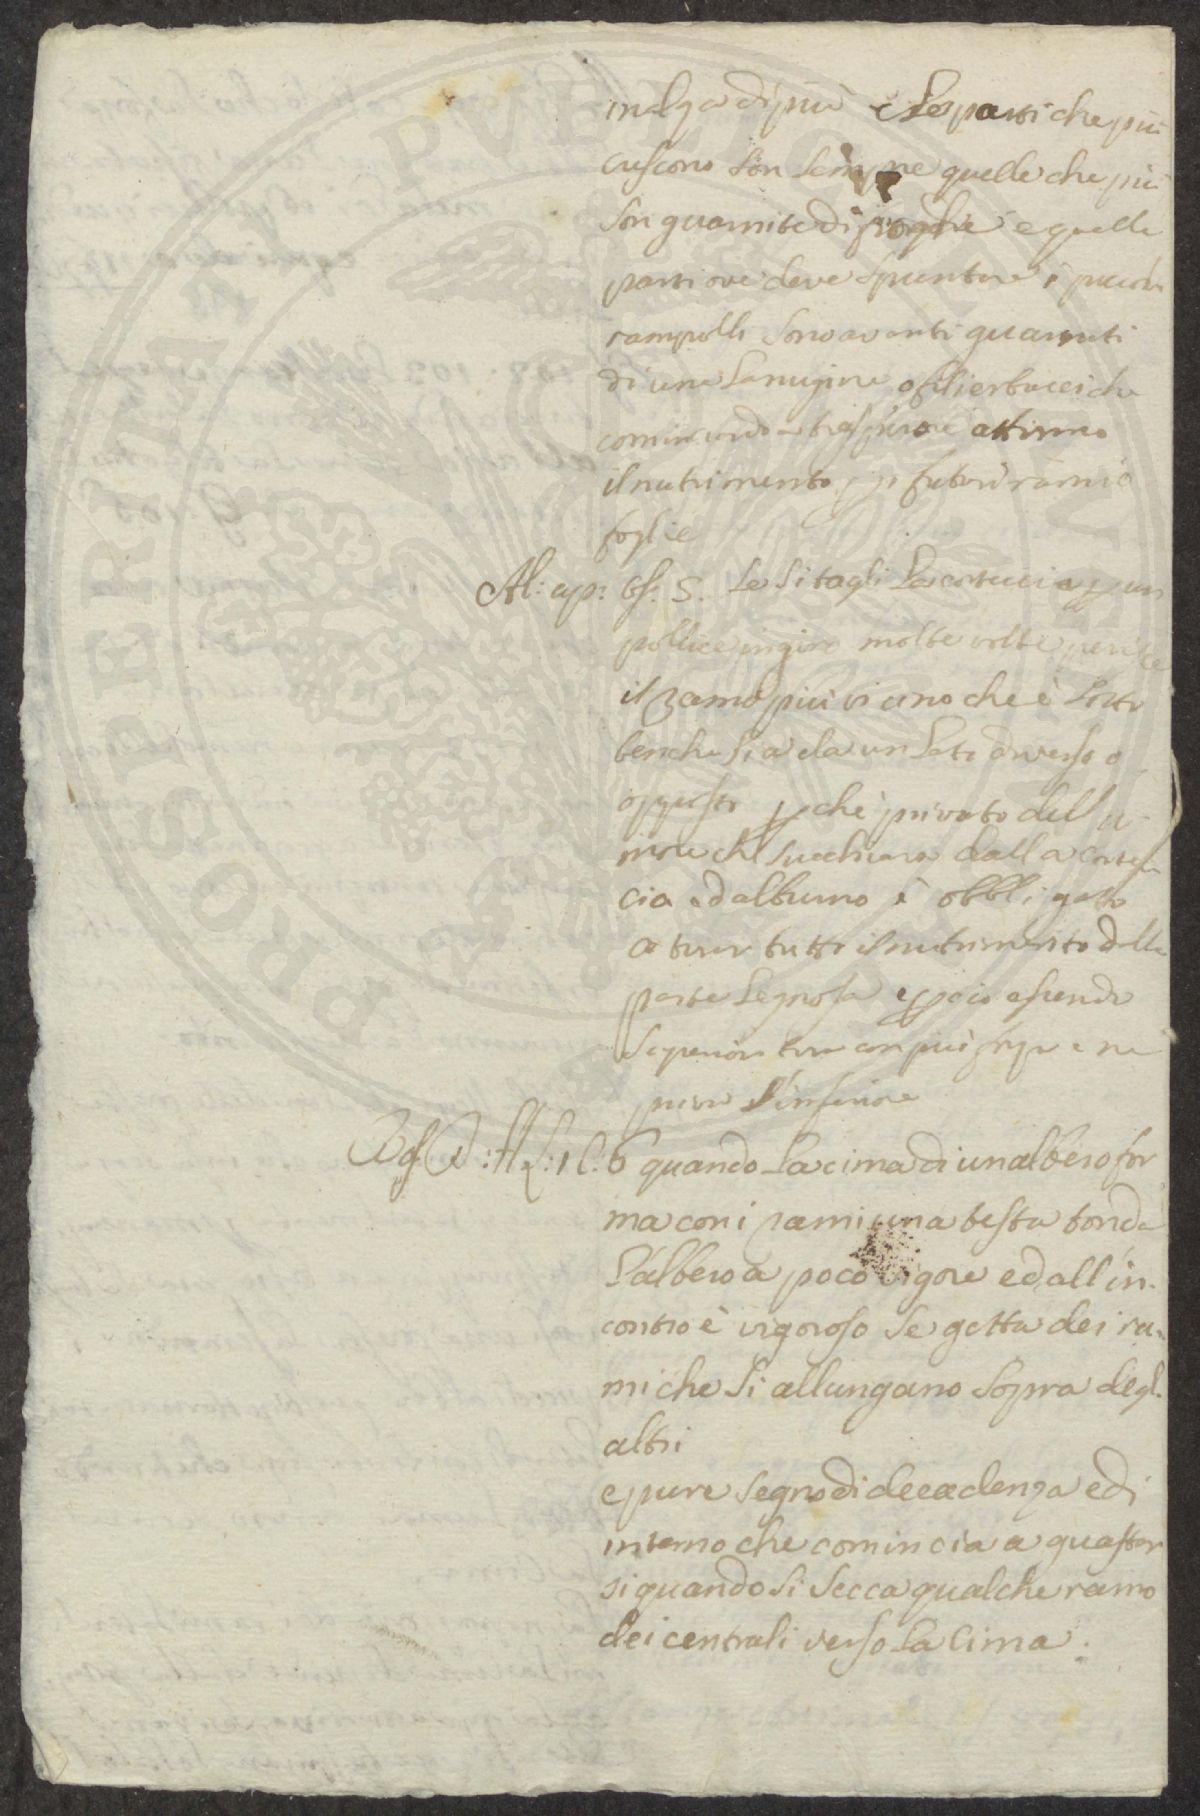 inalza di più e le parti che più
crescono son sempre quelle che più
son guarnite di foglie e quelle
parti ove deve spuntare i piccoli
rampolli sono avanti guarniti
di una lanugine o fili erbacei che
cominciando a traspirare attirano
il nutrimento p i futuri rami e
foglie
Al: cap: S. Se si tagli la corteccia p un
pollice in giro molte volte perisce
il ramo più vicino che è sotto
benche sia da un lato diverso o
opposto pchè privato dell u-
more ch succhiava dalla cortec
cia ed alburno è obbligato
a tirar tutto il nutrimento della
parte legnosa e pciò essendo
superior tira con più forza e ne
priva l'inferiore
6 quando la cima di un albero for
ma con i rami una testa tonda
l'albero à poco vigore ed all'in-
contro è vigoroso se getta dei ra-
mi che si allungano sopra degl.
altri
e pure segno di decadenza e di
interno che comincia a guastar
si quando si secca qualche ramo
dei centrali verso la cima.
PVBLICE
PROSPERITATI